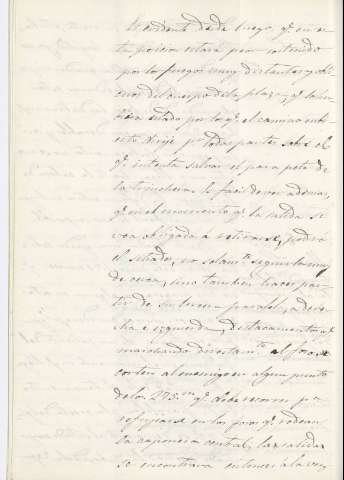 Es evidente desde luego, qe. en es-
ta posicion estara peor sostenido
por los fuegos muy distantes y obli-
cuos del cuerpo de la plaza, y qe.
estado por lo qe. el camino cubi-
erto dirije pr. todas partes sobre el
qe. intenta salvar el parapeto de
la trinchera. Es facil de ver ademas,
qe. en el momento qe. la salida se
vea obligada a retirarse, podrá
el sitiador, no solamte. seguirla muy
de cerca, sino tambien hacer par-
tir de su tercera paralela, a dere-
cha é izquierda, destacamentos qe.
marchando directamte. al foso
corten al enemigo en algun punto
de los 275 ms. qe. debe recorrer pa.
refugiarse en los fosos qe. rodean
la caponera central; las salidas
se encontrara entonces á la vez